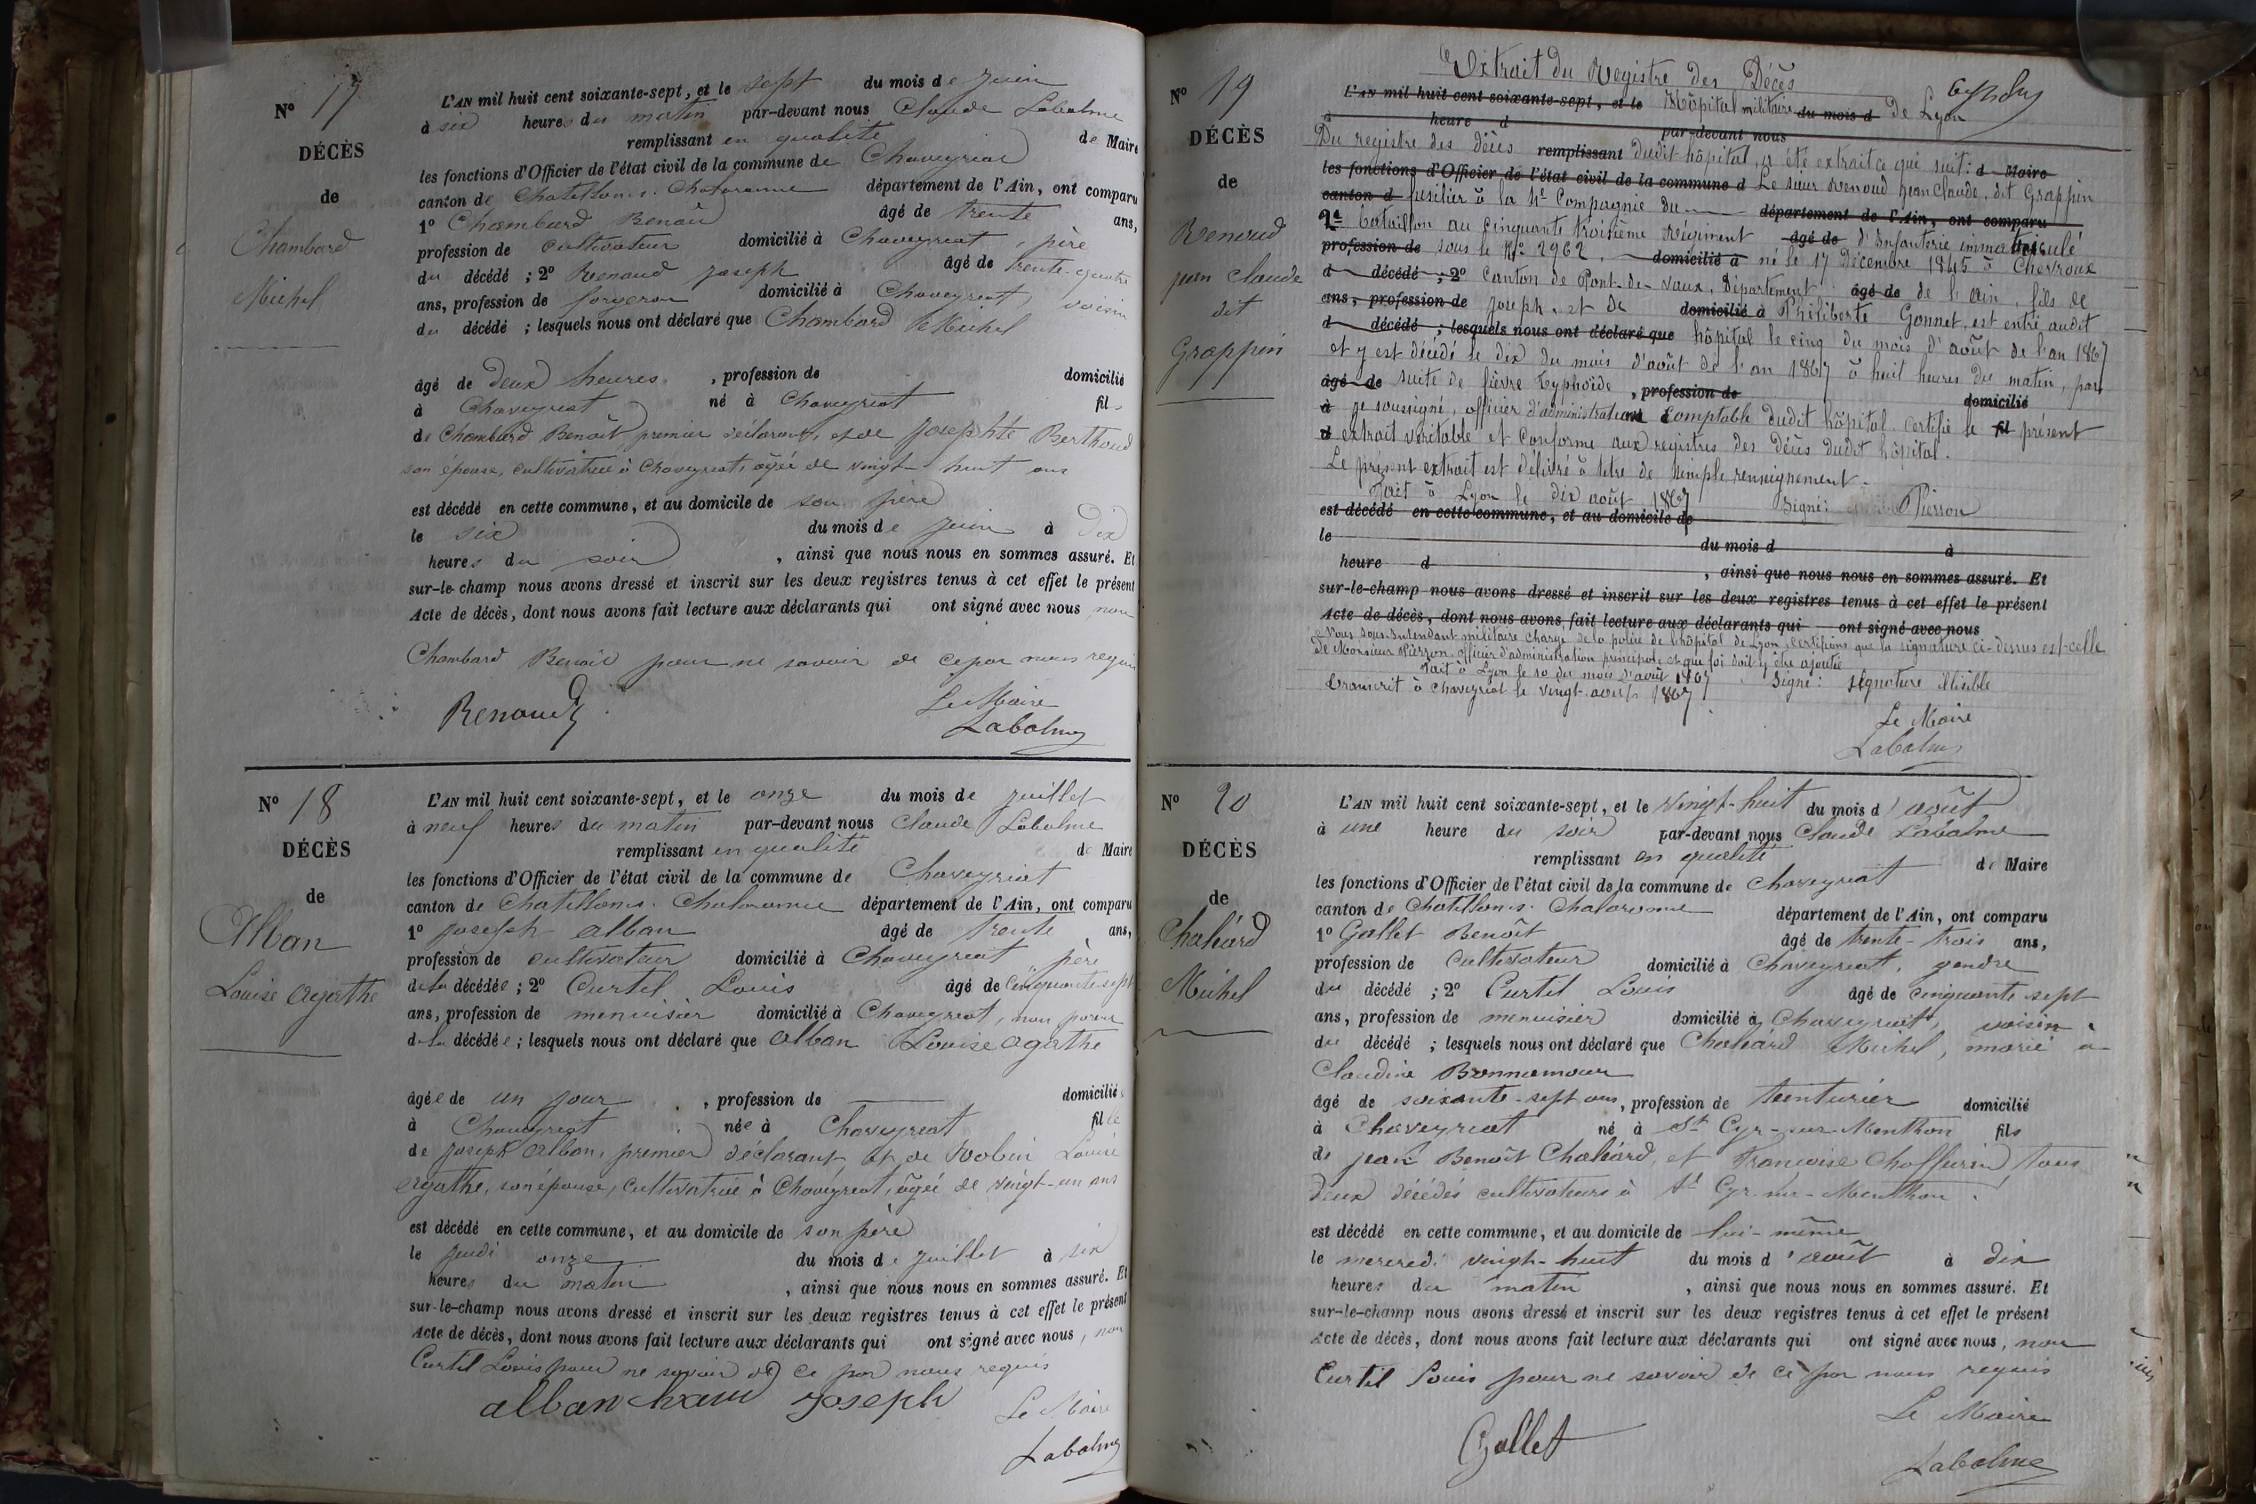 N° 17
DÉCÈS
de
Chambard
Michel
L'AN mil huit cent soixante-sept, et le sept du mois de juin
à six heures du matin par-devant nous Claude Labalme
remplissant en qualité de Maire
les fonctions d'Officier de l'état civil de la commune de Chaveyriat
canton de Chatillon-s-Chalaronne département de l'Ain, ont comparu
1° Chambard Benoit âgé de trente ans,
profession de cultivateur domicilié à Chaveyriat, père
du décédé ; 2° Renaud Joseph âgé de trente-quatre
ans, profession de forgeron domicilié à Chaveyriat, voisin
du décédé ; lesquels nous ont déclaré que Chambard Michel
âgé de deux heures, profession de domicilié
à Chaveyriat né à Chaveyriat fils
de Chambard Benoît premier déclarant, et de Josephte Berthoud
son épouse, cultivatrice à Chaveyriat, âgée de vingt-huit ans
est décédé en cette commune, et au domicile de son père
le six du mois de juin à dix
heures du soir, ainsi que nous nous en sommes assuré. Et
sur-le-champ nous avons dressé et inscrit sur les deux registres tenus à cet effet le présent
Acte de décès, dont nous avons fait lecture aux déclarants qui ont signé avec nous, non
Chambard Benoit pour ne savoir de ce par nous requis
Renaud
Le Maire
Labalme
N° 18
DÉCÈS
de
Alban
Louise Agathe
L'AN mil huit cent soixante-sept, et le onze du mois de juillet
à neuf heures du matin par-devant nous Claude Labalme
remplissant en qualité de Maire
les fonctions d'Officier de l'état civil de la commune de Chaveyriat
canton de Chatillon-s-Chalaronne département de l'Ain, ont comparu
1° Joseph Alban âgé de trente ans,
profession de cultivateur domicilié à Chaveyriat père
de la décédée ; 2° Curtil Louis âgé de cinquante sept
ans, profession de menuisier domicilié à Chaveyriat, non parent
de la décédée ; lesquels nous ont déclaré que Alban Louise Agathe
âgée de un jour, profession de domiciliée
à Chaveyriat née à Chaveyriat fille
de Joseph Alban, premier déclarant, et de Robin Louise
Agathe, son épouse, cultivatrice à Chaveyriat, âgée de vingt-un ans
est décédé en cette commune, et au domicile de son père
le jeudi onze du mois de juillet à six
heures du matin, ainsi que nous nous en sommes assuré. Et
sur-le-champ nous avons dressé et inscrit sur les deux registres tenus à cet effet le présent
Acte de décès, dont nous avons fait lecture aux déclarants qui ont signé avec nous, non
Curtil Louis pour ne savoir de ce par nous requis
alban Joseph
Le Maire
Labalme
N° 19
DÉCÈS
de
Renoud
jean Claude
dit
Grappin
Extrait du Registre des Décès
L'AN mil huit cent soixante-sept, et le Hôpital militaire du mois d de Lyon
à heure d par-devant nous
Du registre des décès remplissant dudit hôpital, a été extrait ce qui suit : d Maire
les fonctions d'Officier de l'état civil de la commune d Le sieur Renoud Jean Claude, dit Grappin
canton d fusilier à la 4e Compagnie du département de l'Ain, ont comparu
2e bataillon au cinquante troisième Régiment âgé de d'Infanterie immatriculé
profession de sous le N° 2962. domicilié à né le 17 Décembre 1845 à Chevroux
d décédé ; 2° Canton de Pont-de-Vaux, Département âgé de de l'Ain, fils de
ans, profession de Joseph, et de domicilié à Philiberte Gonnet, est entré audit
d décédé ; lesquels nous ont déclaré que hôpital le cinq du mois d'août de l'an 1867
et y est décédé le dix du mois d'août de l'an 1867 à huit heures du matin, par
âgé de suite de fièvre typhoïde, profession de domicilié
à je soussigné, officier d'administration Comptable dudit hôpital certifie le fil présent
d extrait véritable et conforme aux registres des Décès dudit hôpital.
Le présent extrait est délivré à titre de simple renseignement.
Fait à Lyon le dix août 1867
est décédé en cette commune, et au domicile de Signé : Pierson
le du mois d à
heure d, ainsi que nous nous en sommes assuré. Et
sur-le-champ nous avons dressé et inscrit sur les deux registres tenus à cet effet le présent
Acte de décès, dont nous avons fait lecture aux déclarants qui ont signé avec nous
Nous sous-Intendant militaire chargé de la police de l'hôpital de Lyon, certifions que la signature ci-dessus est celle
de Monsieur Pierson officier d'administration principal et que foi doit y être ajoutée
Fait à Lyon le 10 du mois d'août 1867 Signé : signature illisible
Transcrit à Chaveyriat le vingt août 1867
Le Maire
Labalme
N° 20
DÉCÈS
de
Chaliard
Michel
L'AN mil huit cent soixante-sept, et le vingt-huit du mois d'août
à une heure du soir par-devant nous Claude Labalme
remplissant en qualité de Maire
les fonctions d'Officier de l'état civil de la commune de Chaveyriat
canton de Chatillon-s-Chalaronne département de l'Ain, ont comparu
1° Gallet Benoît âgé de trente-trois ans,
profession de cultivateur domicilié à Chaveyriat, gendre
du décédé ; 2° Curtil Louis âgé de cinquante sept
ans, profession de menuisier domicilié à Chaveyriat, voisin
du décédé ; lesquels nous ont déclaré que Chaliard Michel, marié à
Claudine Bonnamour
âgé de soixante-sept ans, profession de teinturier domicilié
à Chaveyriat né à St Cyr-sur-Menthon fils
de Jean Benoît Chaliard, et Françoise Chaffurin, tous
deux décédés cultivateurs à St Cyr-sur-Menthon.
est décédé en cette commune, et au domicile de lui-même
le mercredi vingt-huit du mois d'août à dix
heures du matin, ainsi que nous nous en sommes assuré. Et
sur-le-champ nous avons dressé et inscrit sur les deux registres tenus à cet effet le présent
Acte de décès, dont nous avons fait lecture aux déclarants qui ont signé avec nous, non
Curtil Louis pour ne savoir de ce par nous requis
Gallet
Le Maire
Labalme